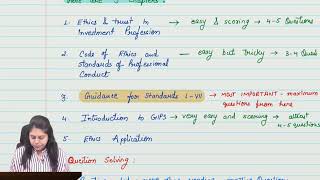 There are 5 Chapters :
1. Ethics & trust in Investment Profession → easy & scoring → 4-5 Questions
2. Code of Ethics and standards of Professional Conduct → easy but Tricky → 3-4 Ques
3. Guidance for Standards I-VII → MOST IMPORTANT - maximum questions from here
4. Introduction to GIPS → very easy and scoring → atleast 4-5 questions
5. Ethics Application
Question Solving :